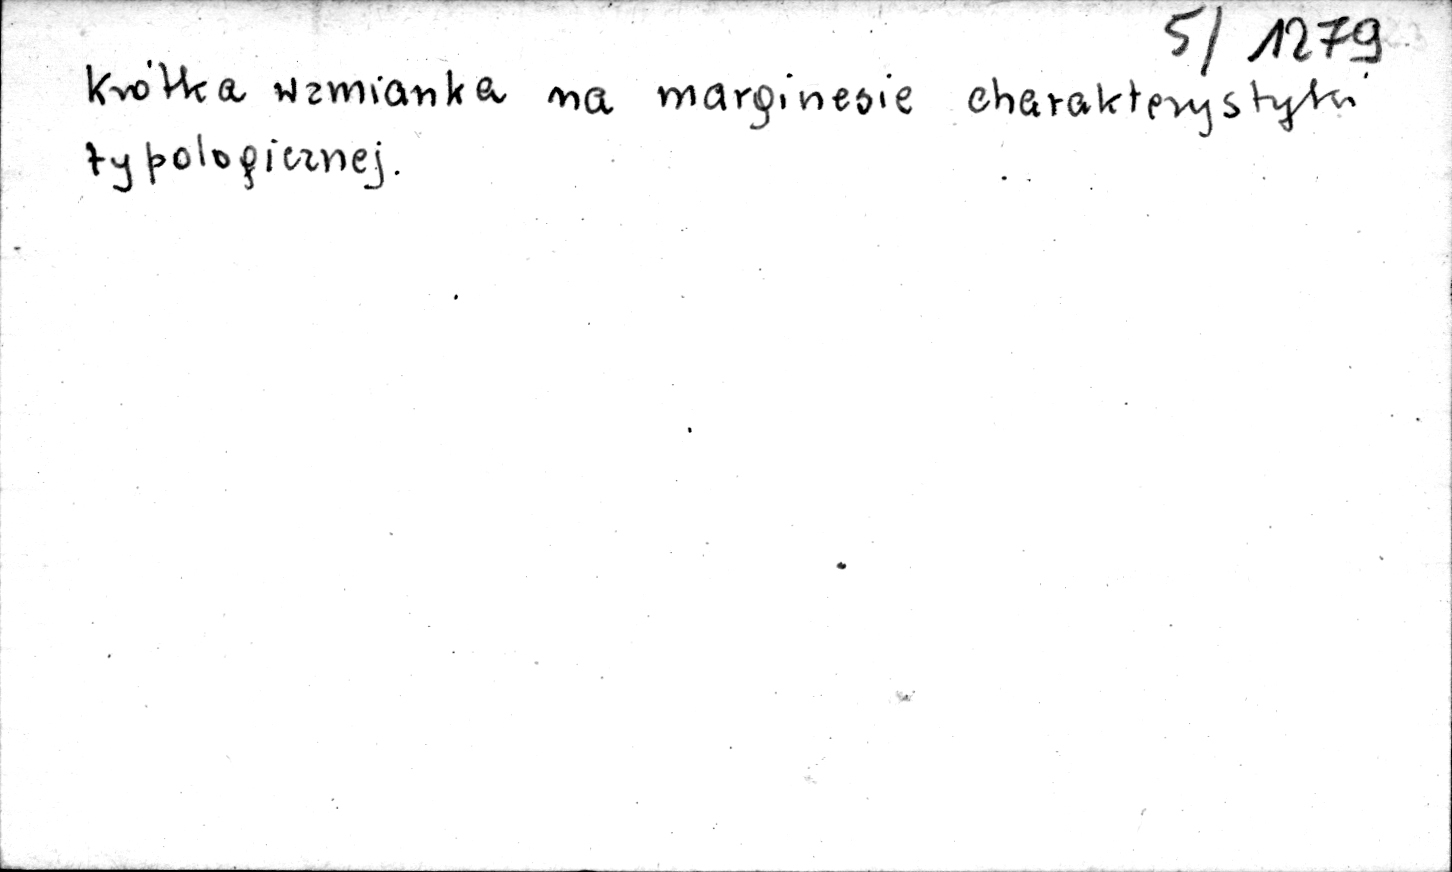 5/ 1279
Krótka wzmianka na marginesie charakterystyki
typologicznej.